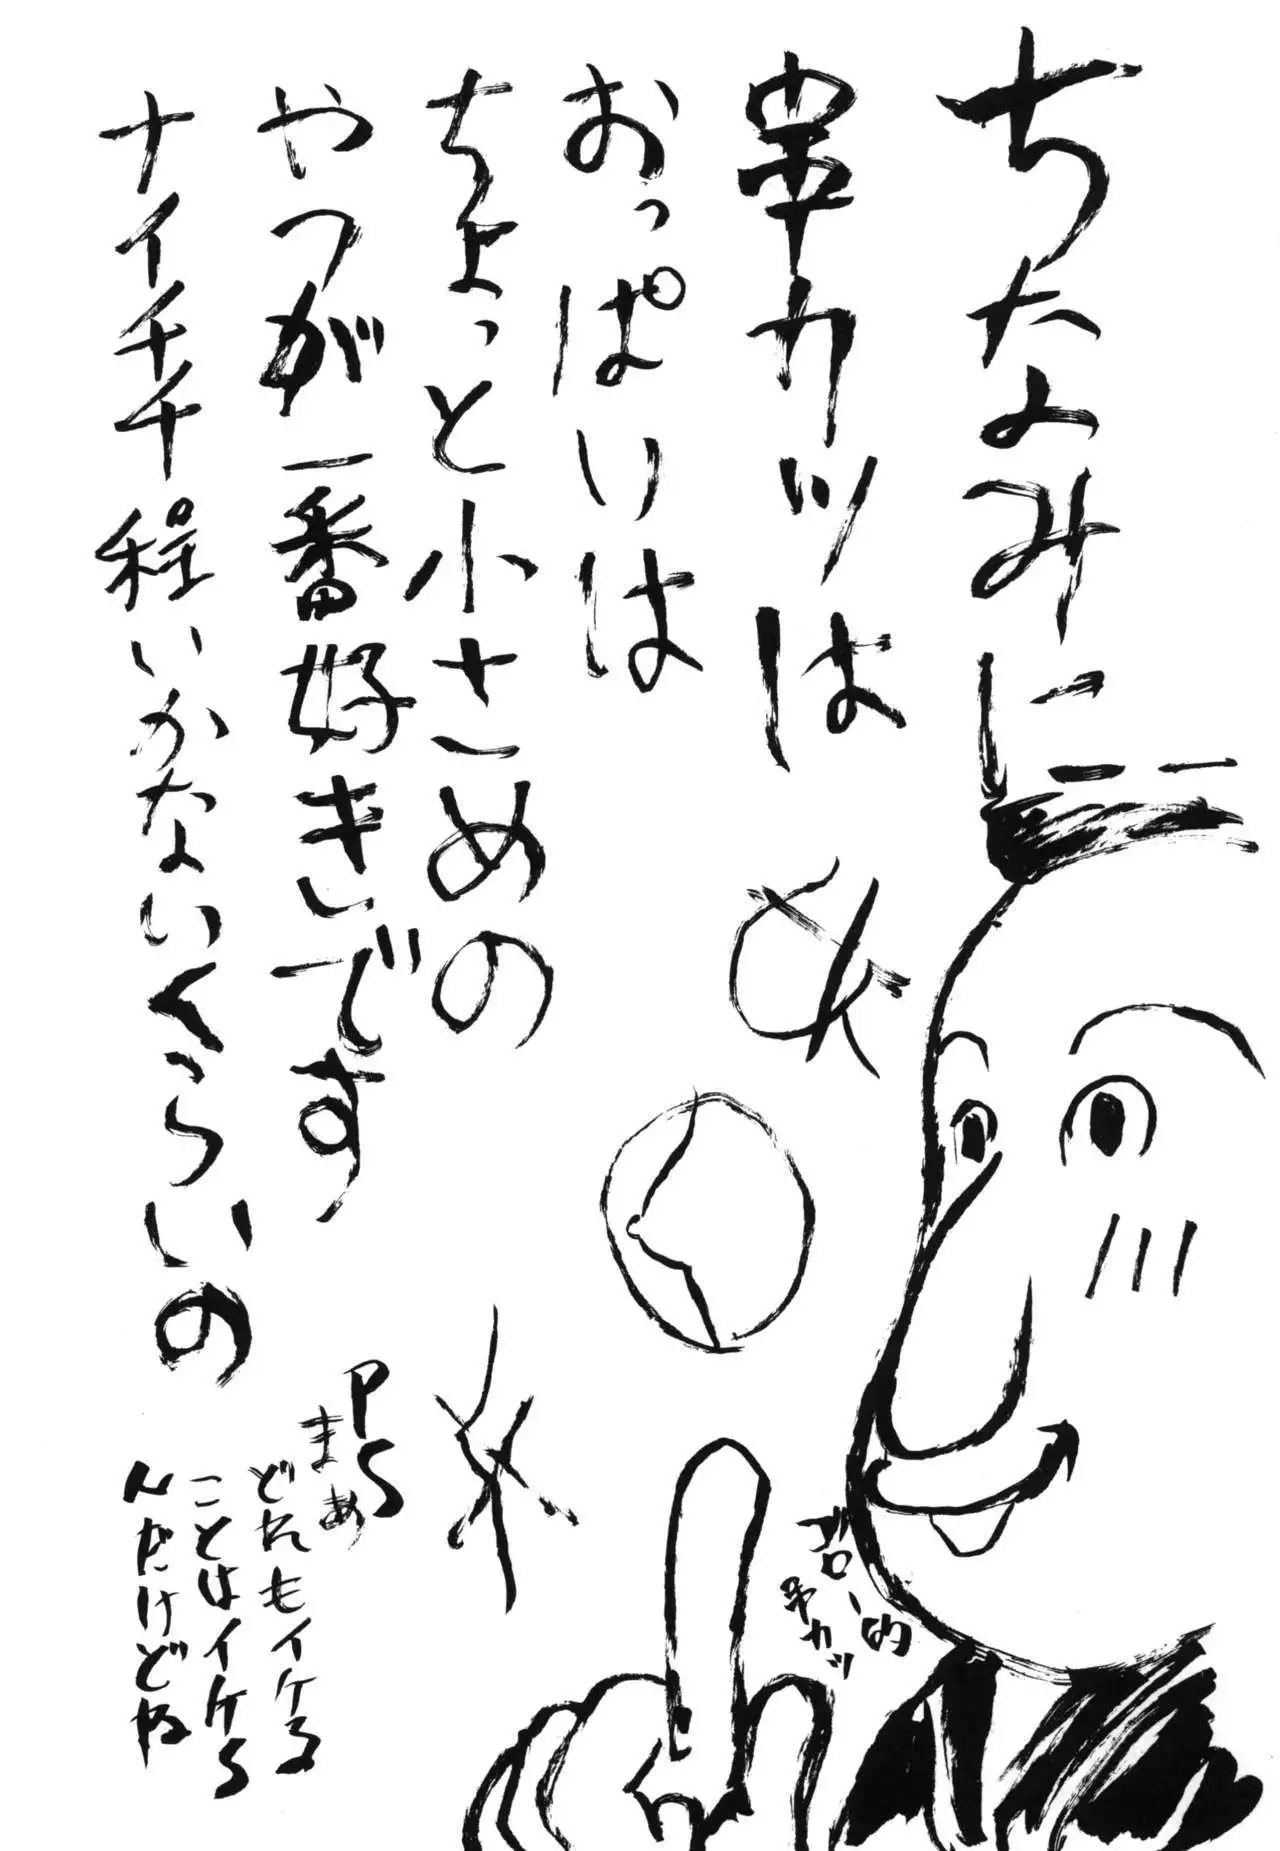 ちなみに
串カツは
おっぱいは
ちょっと小さめの
やつが一番好きです
ナイチチ程いかないくらいの
PS
まぁ
どれもイケる
ことはイケる
んだけどね
的
串カツ